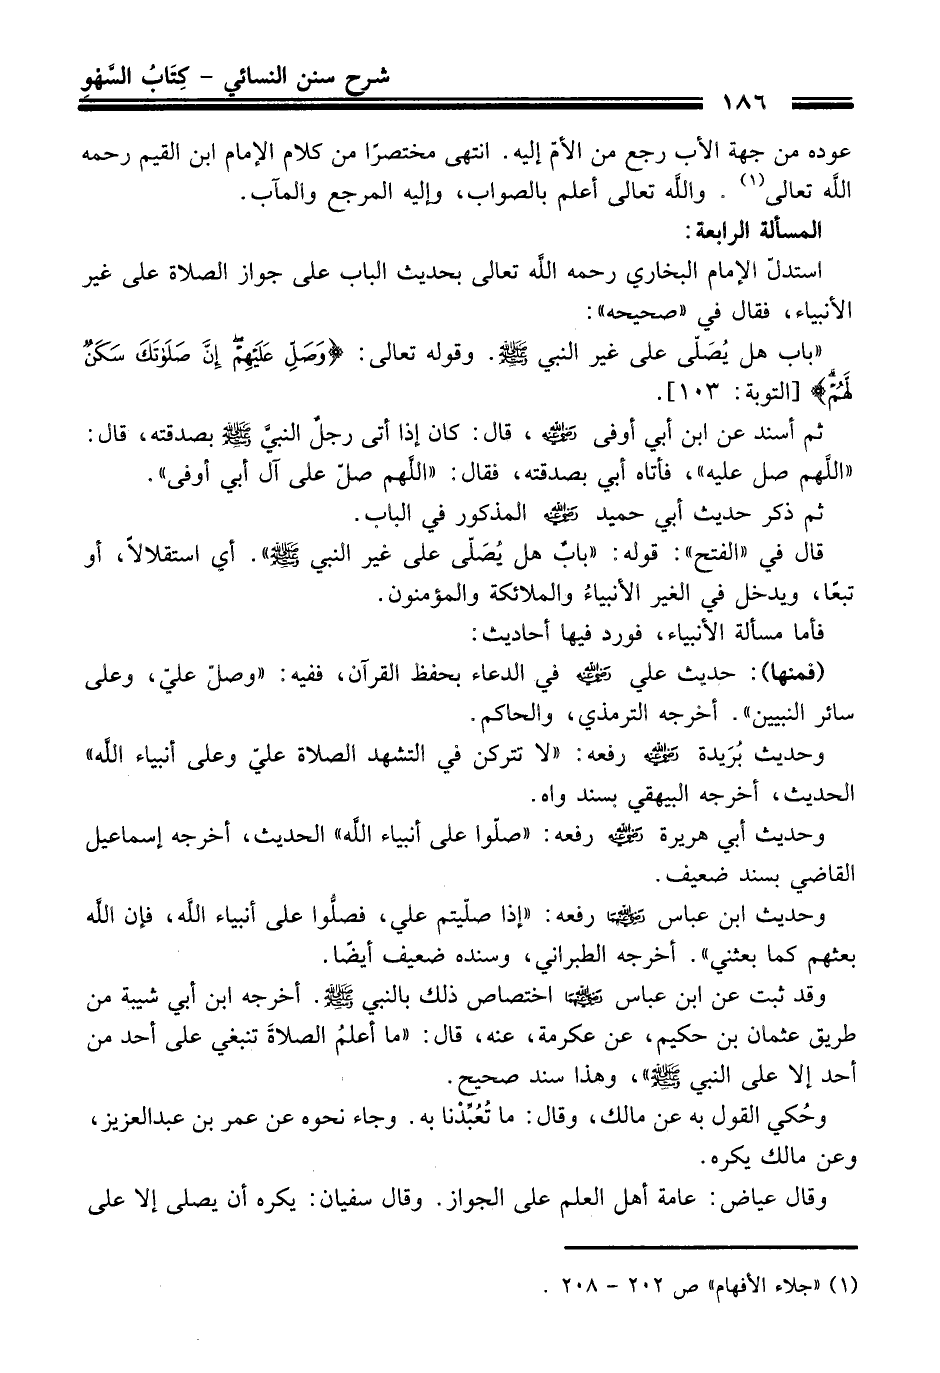 شرح سنن النسائي - كِتَابُ السَّهْوِ
١٨٦
عوده من جهة الأب رجع من الأمّ إليه. انتهى مختصرًا من كلام الإمام ابن القيم رحمه
اللَّه تعالى(١) . واللَّه تعالى أعلم بالصواب، وإليه المرجع والمآب.
المسألة الرابعة:
استدلّ الإمام البخاري رحمه اللَّه تعالى بحديث الباب على جواز الصلاة على غير
الأنبياء، فقال في «صحيحه»:
«باب هل يُصَلّى على غير النبي ﷺ. وقوله تعالى: ﴿وَصَلِّ عَلَيْهِمْۖ إِنَّ صَلَوٰتَكَ سَكَنٌ
لَّهُمْۗ﴾ [التوبة: ١٠٣].
ثم أسند عن ابن أبي أوفى رضي الله عنه ، قال: كان إذا أتى رجلٌ النبيَّ ﷺ بصدقته، قال:
«اللَّهم صل عليه»، فأتاه أبي بصدقته، فقال: «اللَّهم صلّ على آل أبي أوفى».
ثم ذكر حديث أبي حميد رضي الله عنه المذكور في الباب.
قال في «الفتح»: قوله: «بابٌ هل يُصَلّى على غير النبي ﷺ». أي استقلالاً، أو
تبعًا، ويدخل في الغير الأنبياءُ والملائكة والمؤمنون.
فأما مسألة الأنبياء، فورد فيها أحاديث:
(فمنها): حديث علي رضي الله عنه في الدعاء بحفظ القرآن، ففيه: «وصلّ عليّ، وعلى
سائر النبيين». أخرجه الترمذي، والحاكم.
وحديث بُرَيدة رضي الله عنه رفعه: «لا تتركن في التشهد الصلاة عليّ وعلى أنبياء اللَّه»
الحديث، أخرجه البيهقي بسند واه.
وحديث أبي هريرة رضي الله عنه رفعه: «صلّوا على أنبياء اللَّه» الحديث، أخرجه إسماعيل
القاضي بسند ضعيف.
وحديث ابن عباس رضي الله عنهما رفعه: «إذا صلّيتم علي، فصلُّوا على أنبياء اللَّه، فإن اللَّه
بعثهم كما بعثني». أخرجه الطبراني، وسنده ضعيف أيضًا.
وقد ثبت عن ابن عباس رضي الله عنهما اختصاص ذلك بالنبي ﷺ. أخرجه ابن أبي شيبة من
طريق عثمان بن حكيم، عن عكرمة، عنه، قال: «ما أعلمُ الصلاةَ تنبغي على أحد من
أحد إلا على النبي ﷺ»، وهذا سند صحيح.
وحُكي القول به عن مالك، وقال: ما تُعُبِّدْنا به. وجاء نحوه عن عمر بن عبدالعزيز،
وعن مالك يكره.
وقال عياض: عامة أهل العلم على الجواز. وقال سفيان: يكره أن يصلى إلا على
(١) «جلاء الأفهام» ص ٢٠٢ - ٢٠٨ .